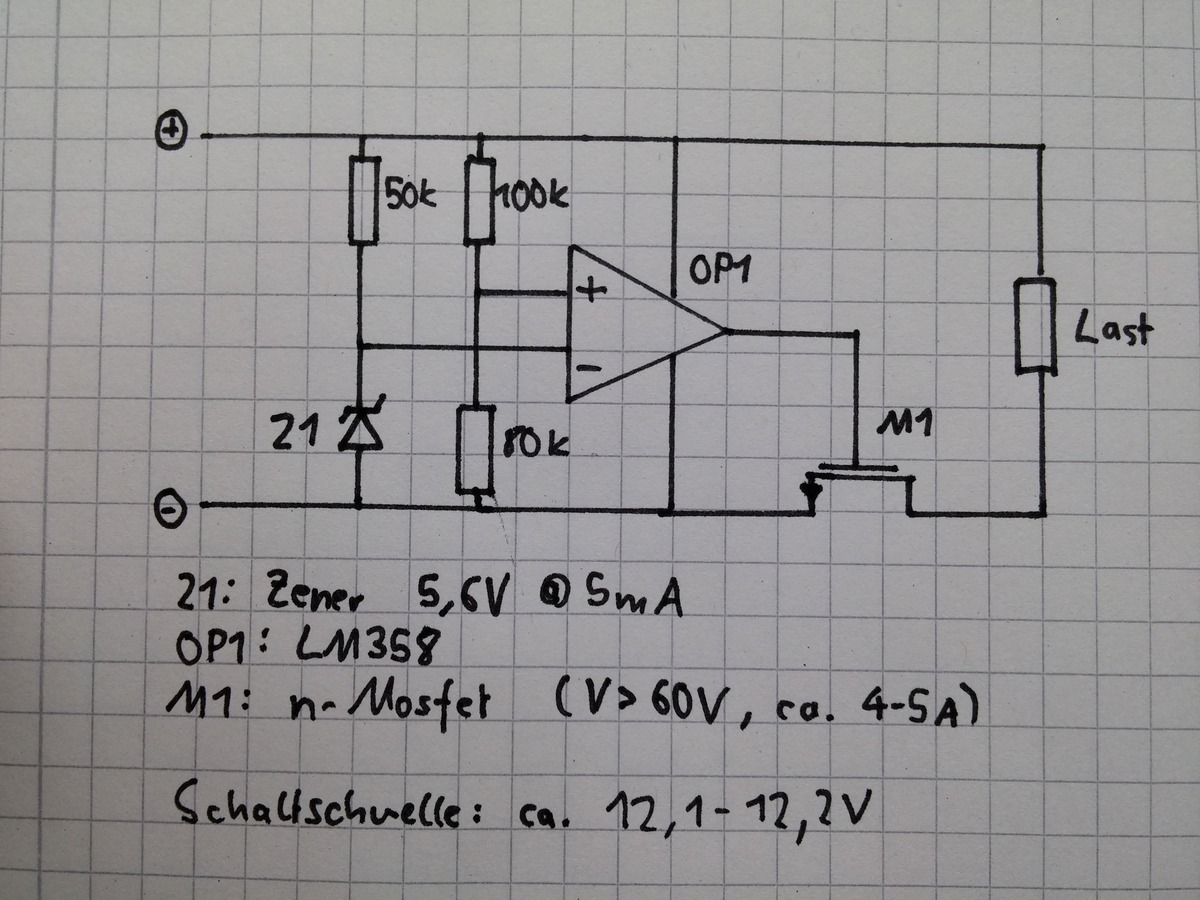 ⊕
50k 100k
+ OP1
Last
-
Z1 80k M1
⊖
Z1: Zener 5,6V @ 5mA
OP1: LM358
M1: n-Mosfet (V> 60V, ca. 4-5A)
Schaltschwelle: ca. 12,1-12,2V